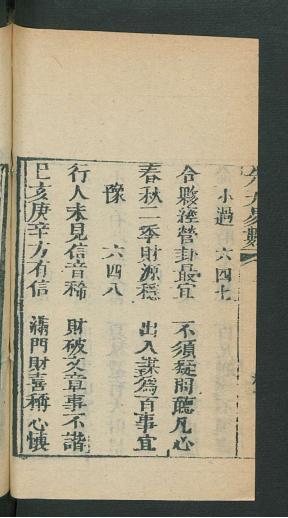 小過 六四七
合夥經營卦最宜 不須疑問聽凡心
春秋二季財源穩 出入謀為百事宜
豫 六四八
行人未見信音稀 財破文章事不諧
巳亥庚辛方有信 滿門財喜稱心懷